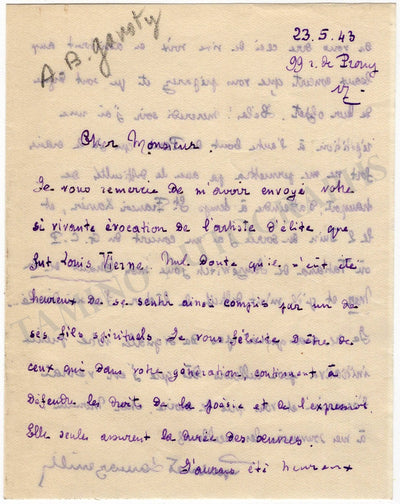 A B. Gavoty
23.5.43
99 r. de Prony
Cher Monsieur.
Je vous remercie de m'avoir envoyé votre
si vivante évocation de l'artiste d'élite que
fut Louis Vierne. Nul doute qu'il n'eût été
heureux de se sentir ainsi compris par un de
ses fils spirituels. Je vous félicite d'être de
ceux qui dans votre génération, continuent à
défendre les droits de la poésie et de l'expression.
Elle seules assurent la durée des oeuvres.
J'aurais été heureux
TAMINO AUTOGRAPHS